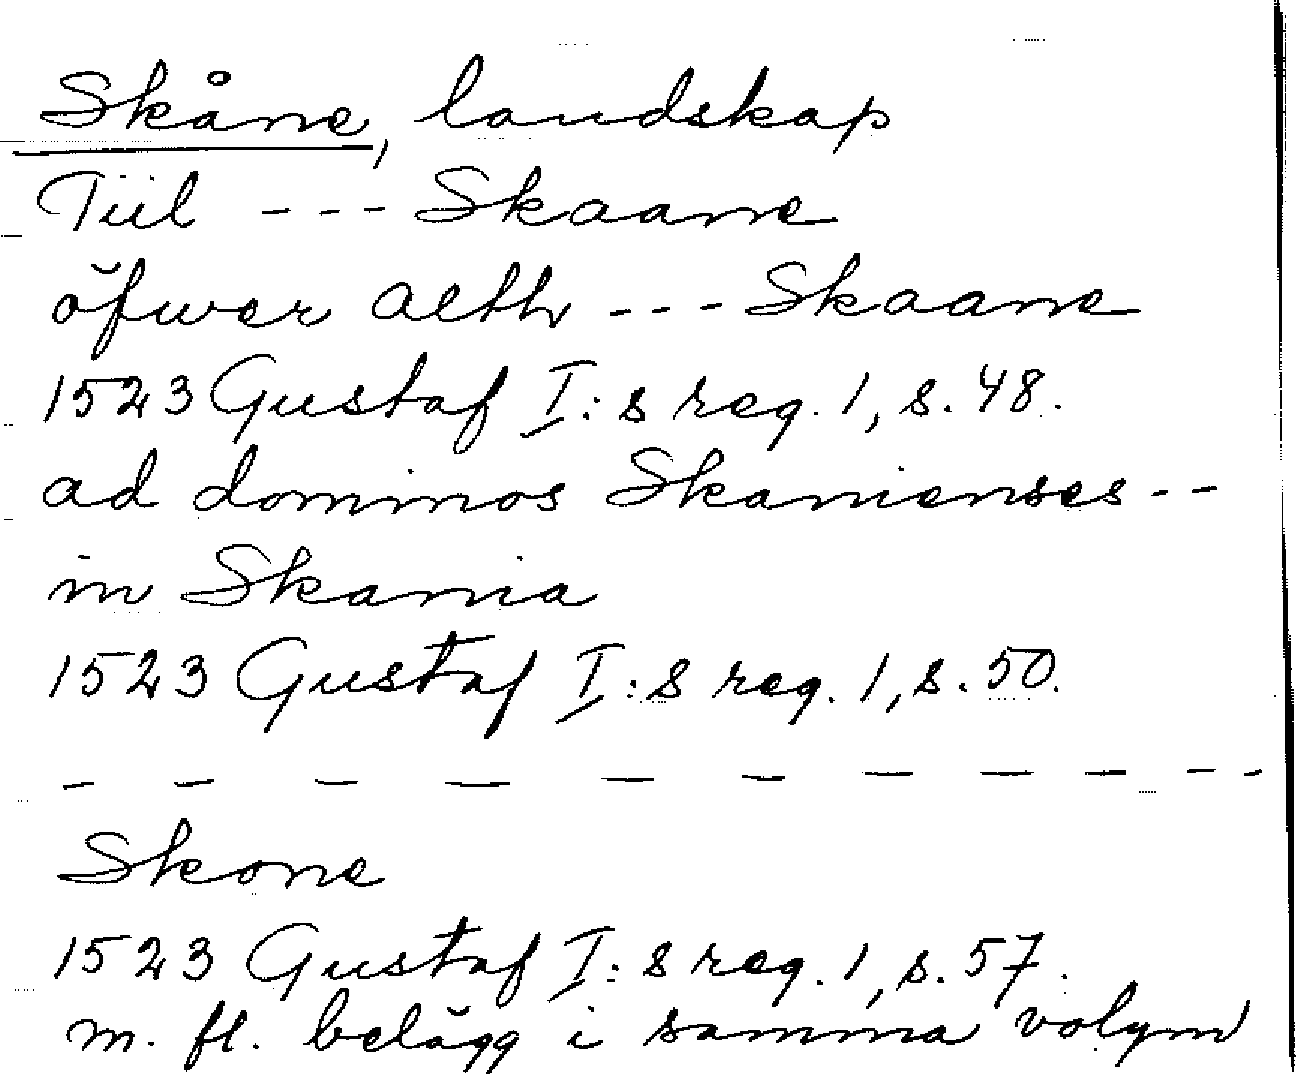 Skåne, landskap
Tiil --- Skaane
öfwer alth --- Skaane
1523 Gustaf I:s reg. 1, s. 48.
ad dominos Skanienses --
in Skania
1523 Gustaf I:s reg. 1, s. 50.
- - - - - - - - - - -
Skone
1523 Gustaf I:s reg. 1, s. 57.
m. fl. belägg i samma volym